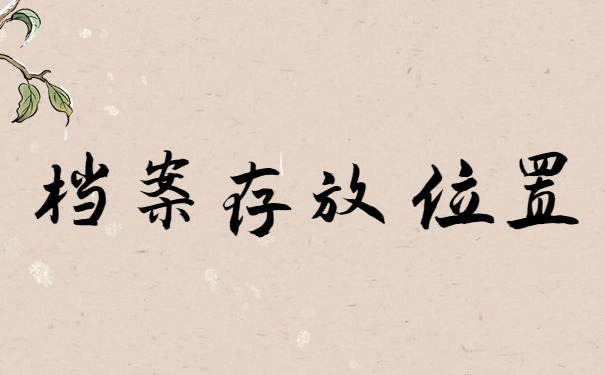 档案存放位置